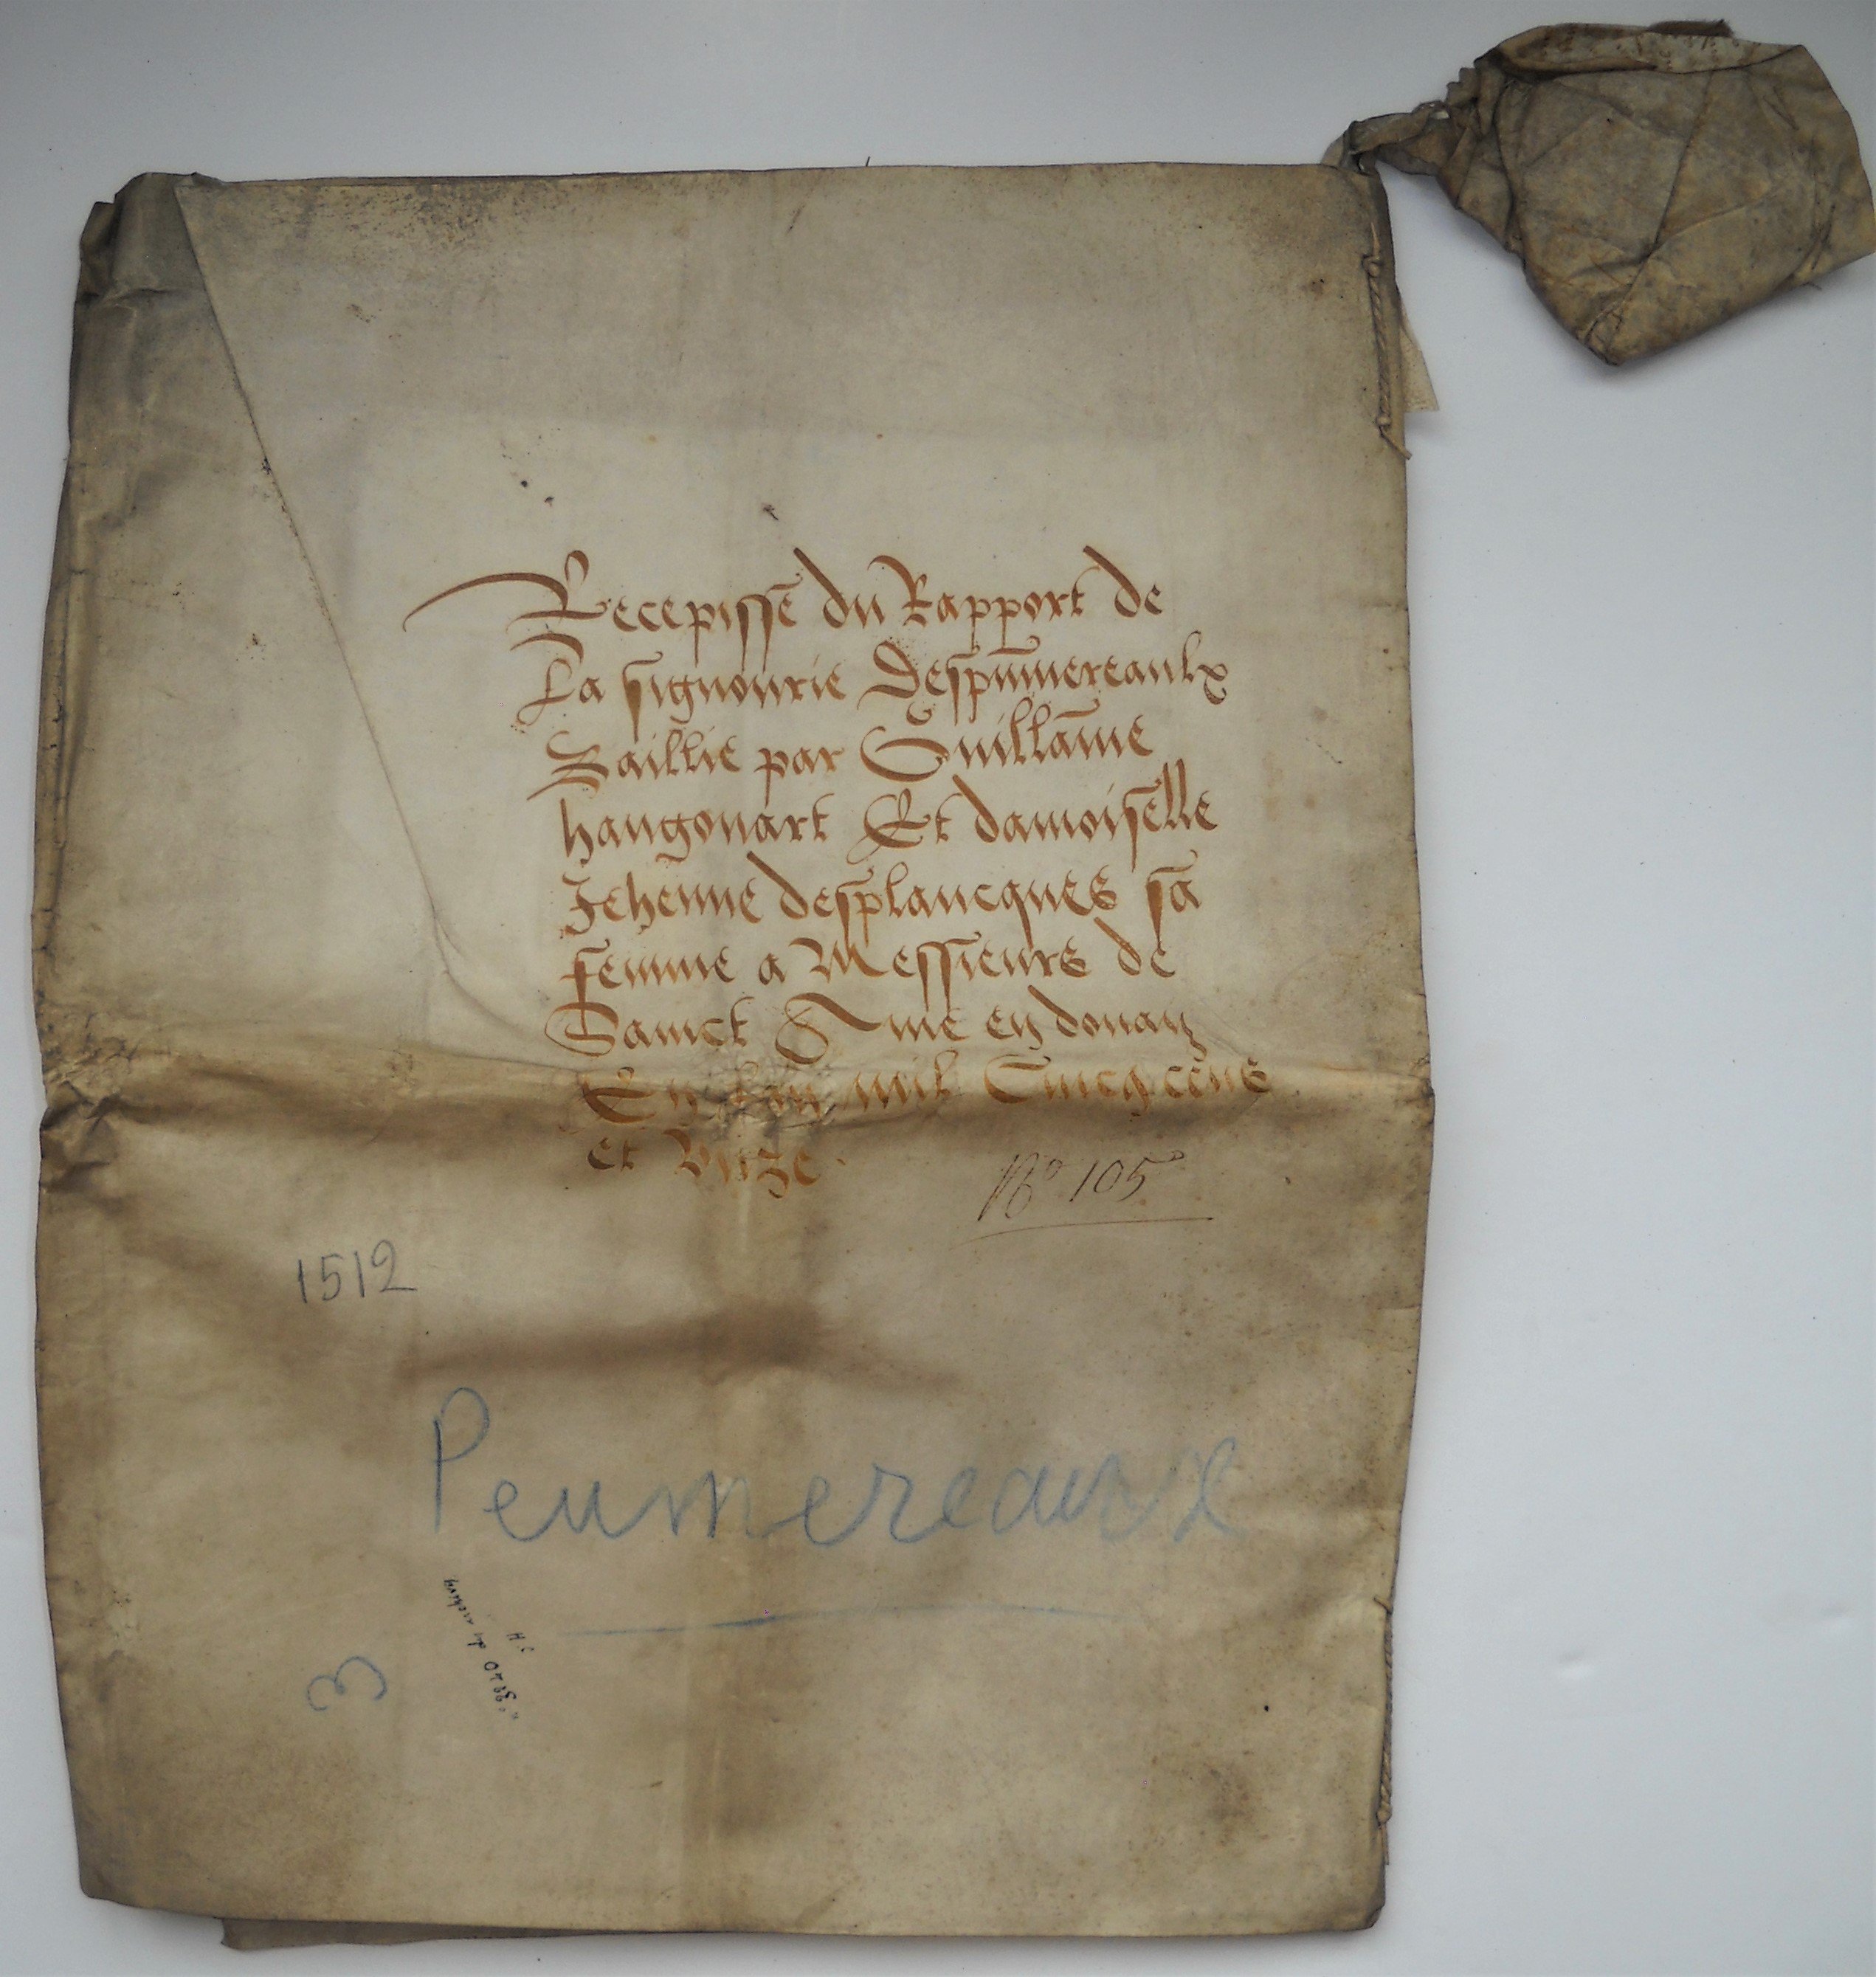 Recepisse du Rapport de
La signourie despumereaulx
Baillie par Guillāme
hangouart Et damoiselle
Jehenne desplancques sa
femme a Messieurs de
Sainct Ame en douay
En lan mil Cincq cens
et unze.
No 105
1512
Peumereaux
3